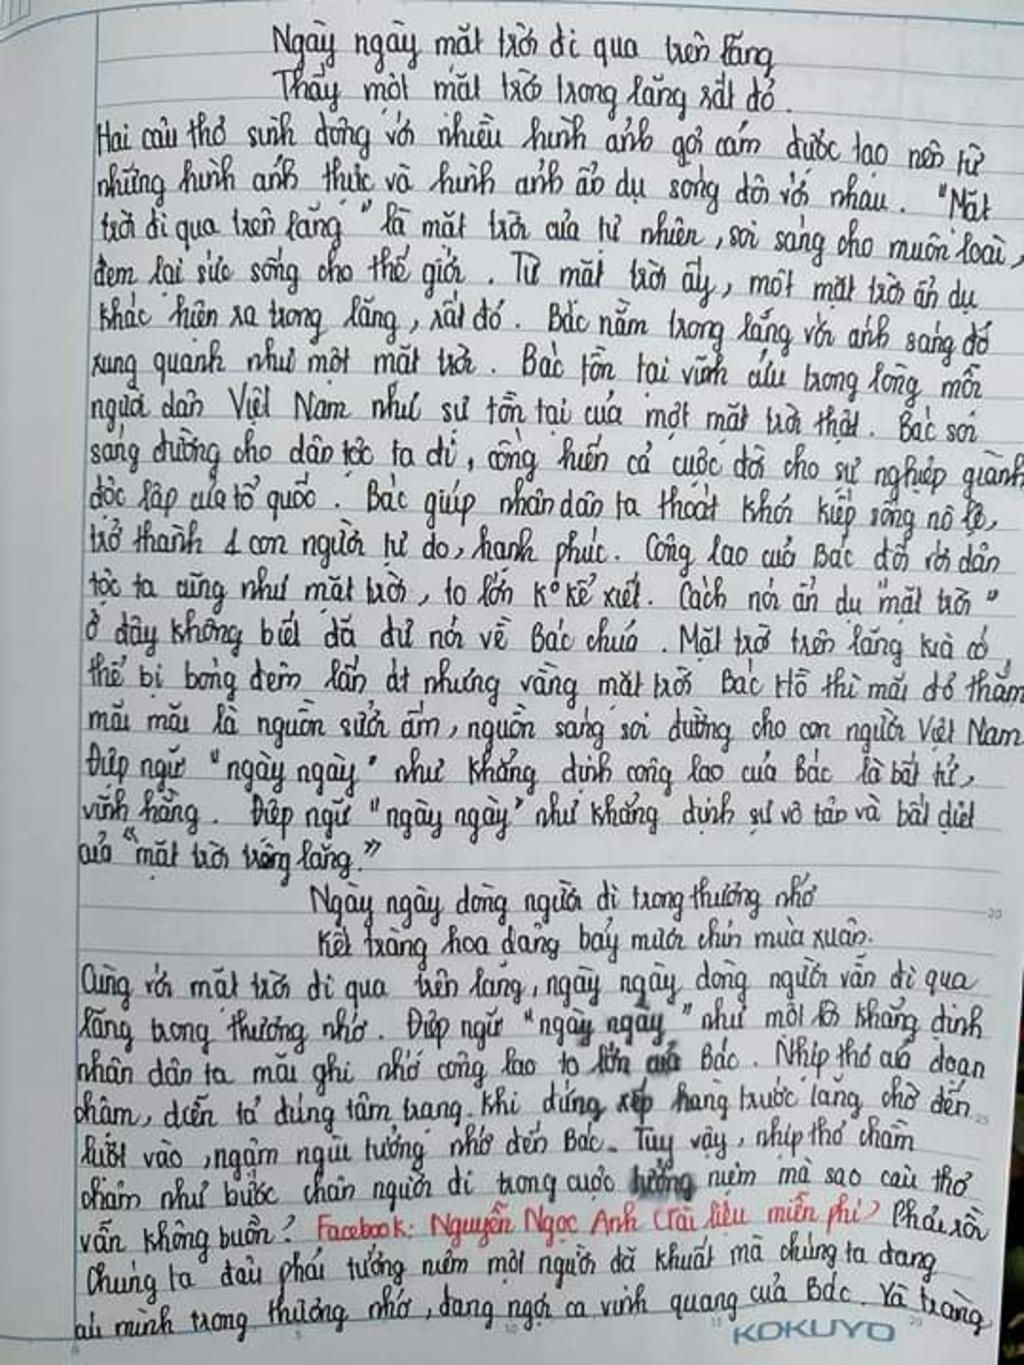 Ngày ngày mặt trời đi qua trên lăng
Thấy một mặt trời trong lăng rất đỏ.
Hai câu thơ sinh động với nhiều hình ảnh gợi cảm được tạo nên từ
những hình ảnh thực và hình ảnh ẩn dụ song đôi với nhau. "Mặt
trời đi qua trên lăng" là mặt trời của tự nhiên, soi sáng cho muôn loài,
đem lại sức sống cho thế giới. Từ mặt trời ấy, một mặt trời ẩn dụ
khác hiện ra trong lăng, rất đỏ. Bác nằm trong lăng với ánh sáng đỏ
xung quanh như một mặt trời. Bác tồn tại vĩnh cửu trong lòng mỗi
người dân Việt Nam như sự tồn tại của một mặt trời thật. Bác soi
sáng đường cho dân tộc ta đi, cống hiến cả cuộc đời cho sự nghiệp giành
độc lập của tổ quốc. Bác giúp nhân dân ta thoát khỏi kiếp sống nô lệ,
trở thành 1 con người tự do, hạnh phúc. Công lao của Bác đối với dân
tộc ta cũng như mặt trời, to lớn k° kể xiết. Cách nói ẩn dụ "mặt trời"
ở đây không biết đã đủ nói về Bác chưa. Mặt trời trên lăng kia có
thể bị bóng đêm lấn át nhưng vầng mặt trời Bác Hồ thì mãi đỏ thắm
mãi mãi là nguồn sưởi ấm, nguồn sáng soi đường cho con người Việt Nam
Điệp ngữ "ngày ngày" như khẳng định công lao của Bác là bất tử,
vĩnh hằng. Điệp ngữ "ngày ngày" như khẳng định sự vô tận và bất diệt
của "mặt trời trong lăng."
Ngày ngày dòng người đi trong thương nhớ
Kết tràng hoa dâng bảy mươi chín mùa xuân.
Cùng với mặt trời đi qua trên lăng, ngày ngày dòng người vẫn đi qua
lăng trong thương nhớ. Điệp ngữ "ngày ngày" như một lời khẳng định
nhân dân ta mãi ghi nhớ công lao to lớn của Bác. Nhịp thơ của đoạn
chậm, diễn tả đúng tâm trạng khi đứng xếp hàng trước lăng chờ đến
lượt vào, ngậm ngùi tưởng nhớ đến Bác. Tuy vậy, nhịp thơ chầm
chậm như bước chân người đi trong cuộc tưởng niệm mà sao câu thơ
vẫn không buồn? Facebook: Nguyễn Ngọc Anh (Tài liệu miễn phí) Phải rồi
Chúng ta đâu phải tưởng niệm một người đã khuất mà chúng ta đang
minh trong thương nhớ, đang ngợi ca vinh quang của Bác. Và tràng
KOKUYO